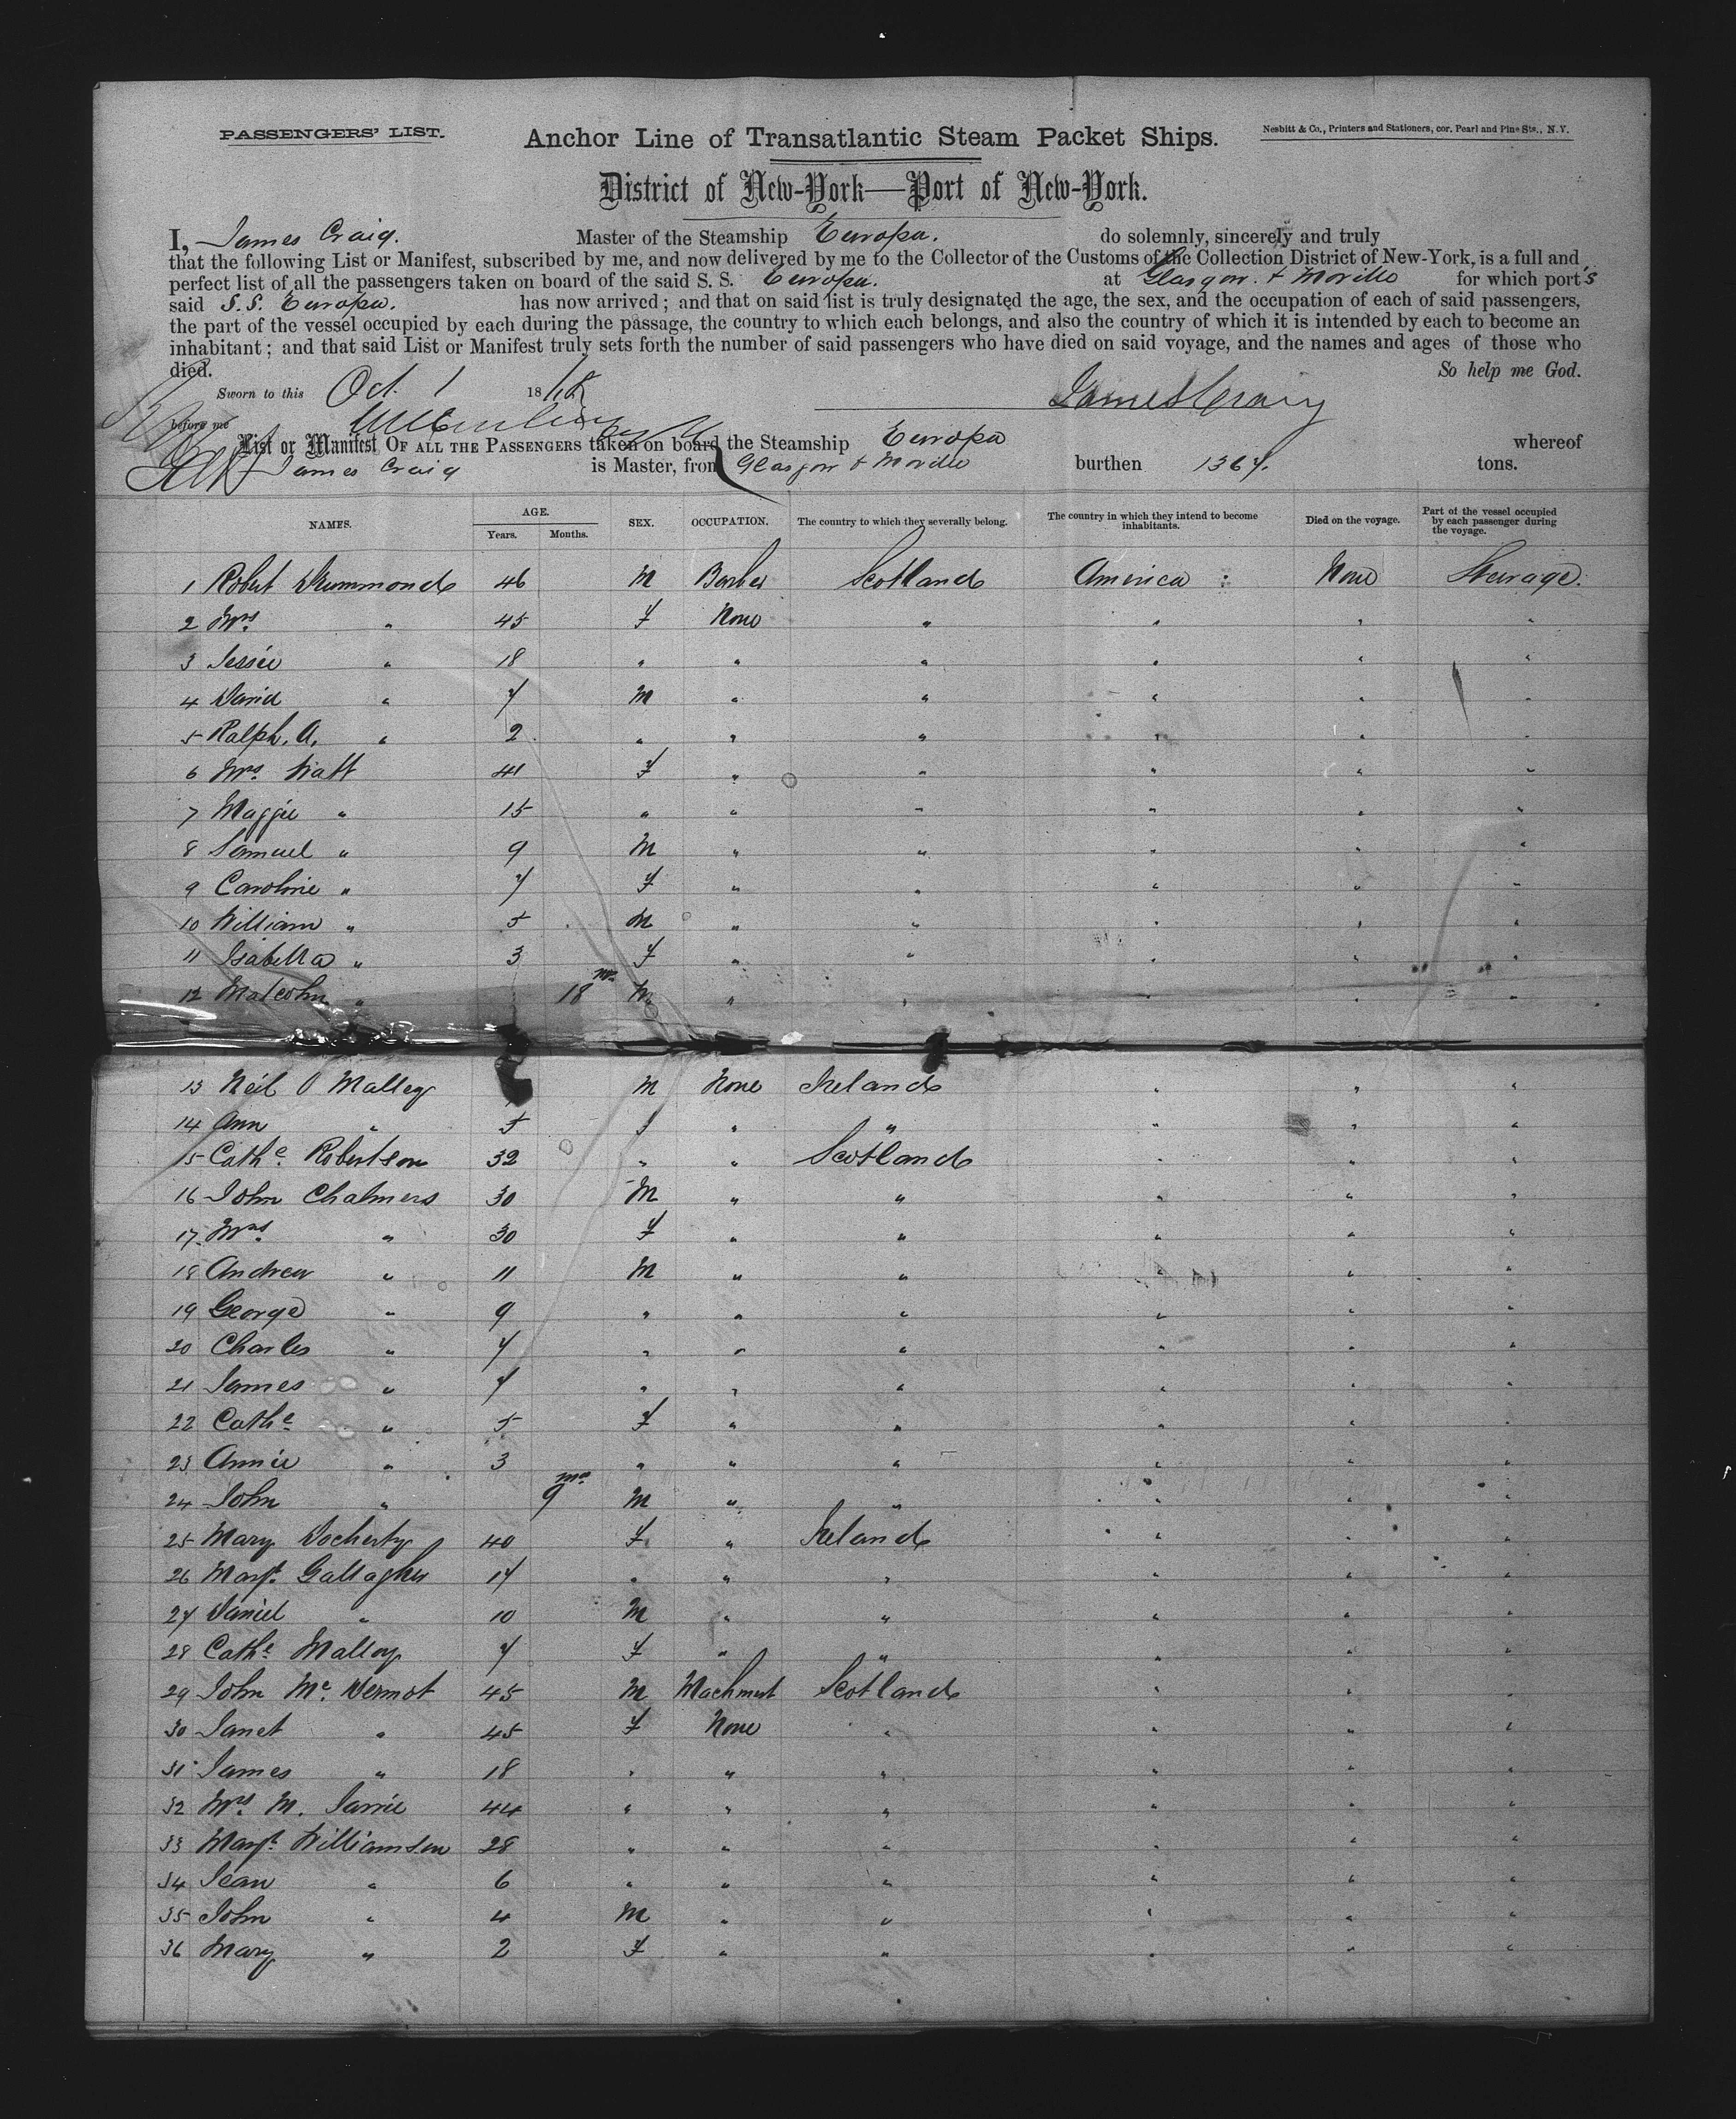 PASSENGERS' LIST.
Anchor Line of Transatlantic Steam Packet Ships.
Nesbitt & Co., Printers and Stationers, cor. Pearl and Pine Sts., N.Y.
District of New-York—Port of New-York.
I, James Craig. Master of the Steamship Europa. do solemnly, sincerely and truly
that the following List or Manifest, subscribed by me, and now delivered by me to the Collector of the Customs of the Collection District of New-York, is a full and
perfect list of all the passengers taken on board of the said S. S. Europa. at Glasgow. & Moville for which port's
said S.S. Europa. has now arrived; and that on said list is truly designated the age, the sex, and the occupation of each of said passengers,
the part of the vessel occupied by each during the passage, the country to which each belongs, and also the country of which it is intended by each to become an
inhabitant; and that said List or Manifest truly sets forth the number of said passengers who have died on said voyage, and the names and ages of those who
died. So help me God.
Sworn to this Oct. 1 18 James Craig
before me
List or Manifest OF ALL THE PASSENGERS taken on board the Steamship Europa whereof
James Craig is Master, from Glasgow & Moville burthen 1367. tons.
NAMES. AGE. Years. Months. SEX. OCCUPATION. The country to which they severally belong. The country in which they intend to become inhabitants. Died on the voyage. Part of the vessel occupied by each passenger during the voyage.
1 Robert Drummond 46 M Barber Scotland America None Steerage.
2 Mrs " 45 F None " " " "
3 Jessie " 18 " " " " " "
4 David " 7 M " " " " "
5 Ralph. A. " 2 " " " " " "
6 Mrs. Watt 41 F " " " " "
7 Maggie " 15 " " " " " "
8 Samuel " 9 M " " " " "
9 Caroline " 7 F " " " " "
10 William " 5 M " " " " "
11 Isabella " 3 F " " " " "
12 Malcolm " 18 mo M " " " " "
13 Neil O Malley M None Ireland " " "
14 Ann " 5 f " " " " "
15 Cathe. Robertson 32 " " Scotland " " "
16 John Chalmers 30 M " " " " "
17. Mrs. " 30 F " " " " "
18 Andrew " 11 M " " " " "
19 George " 9 " " " " " "
20 Charles " 7 " " " " " "
21 James " 7 " " " " " "
22 Cathe " 5 F " " " " "
23 Annie " 3 " " " " " "
24 John " 9 mo M " " " " "
25 Mary Docherty 40 F " Ireland " " "
26 Margt. Gallagher 17 " " " " " "
27 Daniel " 10 M " " " " "
28 Cathe Malloy 7 F " " " " "
29 John Mc. Dermot 45 M Machinist Scotland " " "
30 Janet " 45 F None " " " "
31 James " 18 " " " " " "
32 Mrs. M. Jarvie 44 " " " " " "
33 Margt. Williamson 28 " " " " " "
34 Jean " 6 " " " " " "
35 John " 4 M " " " " "
36 Mary " 2 F " " " " "